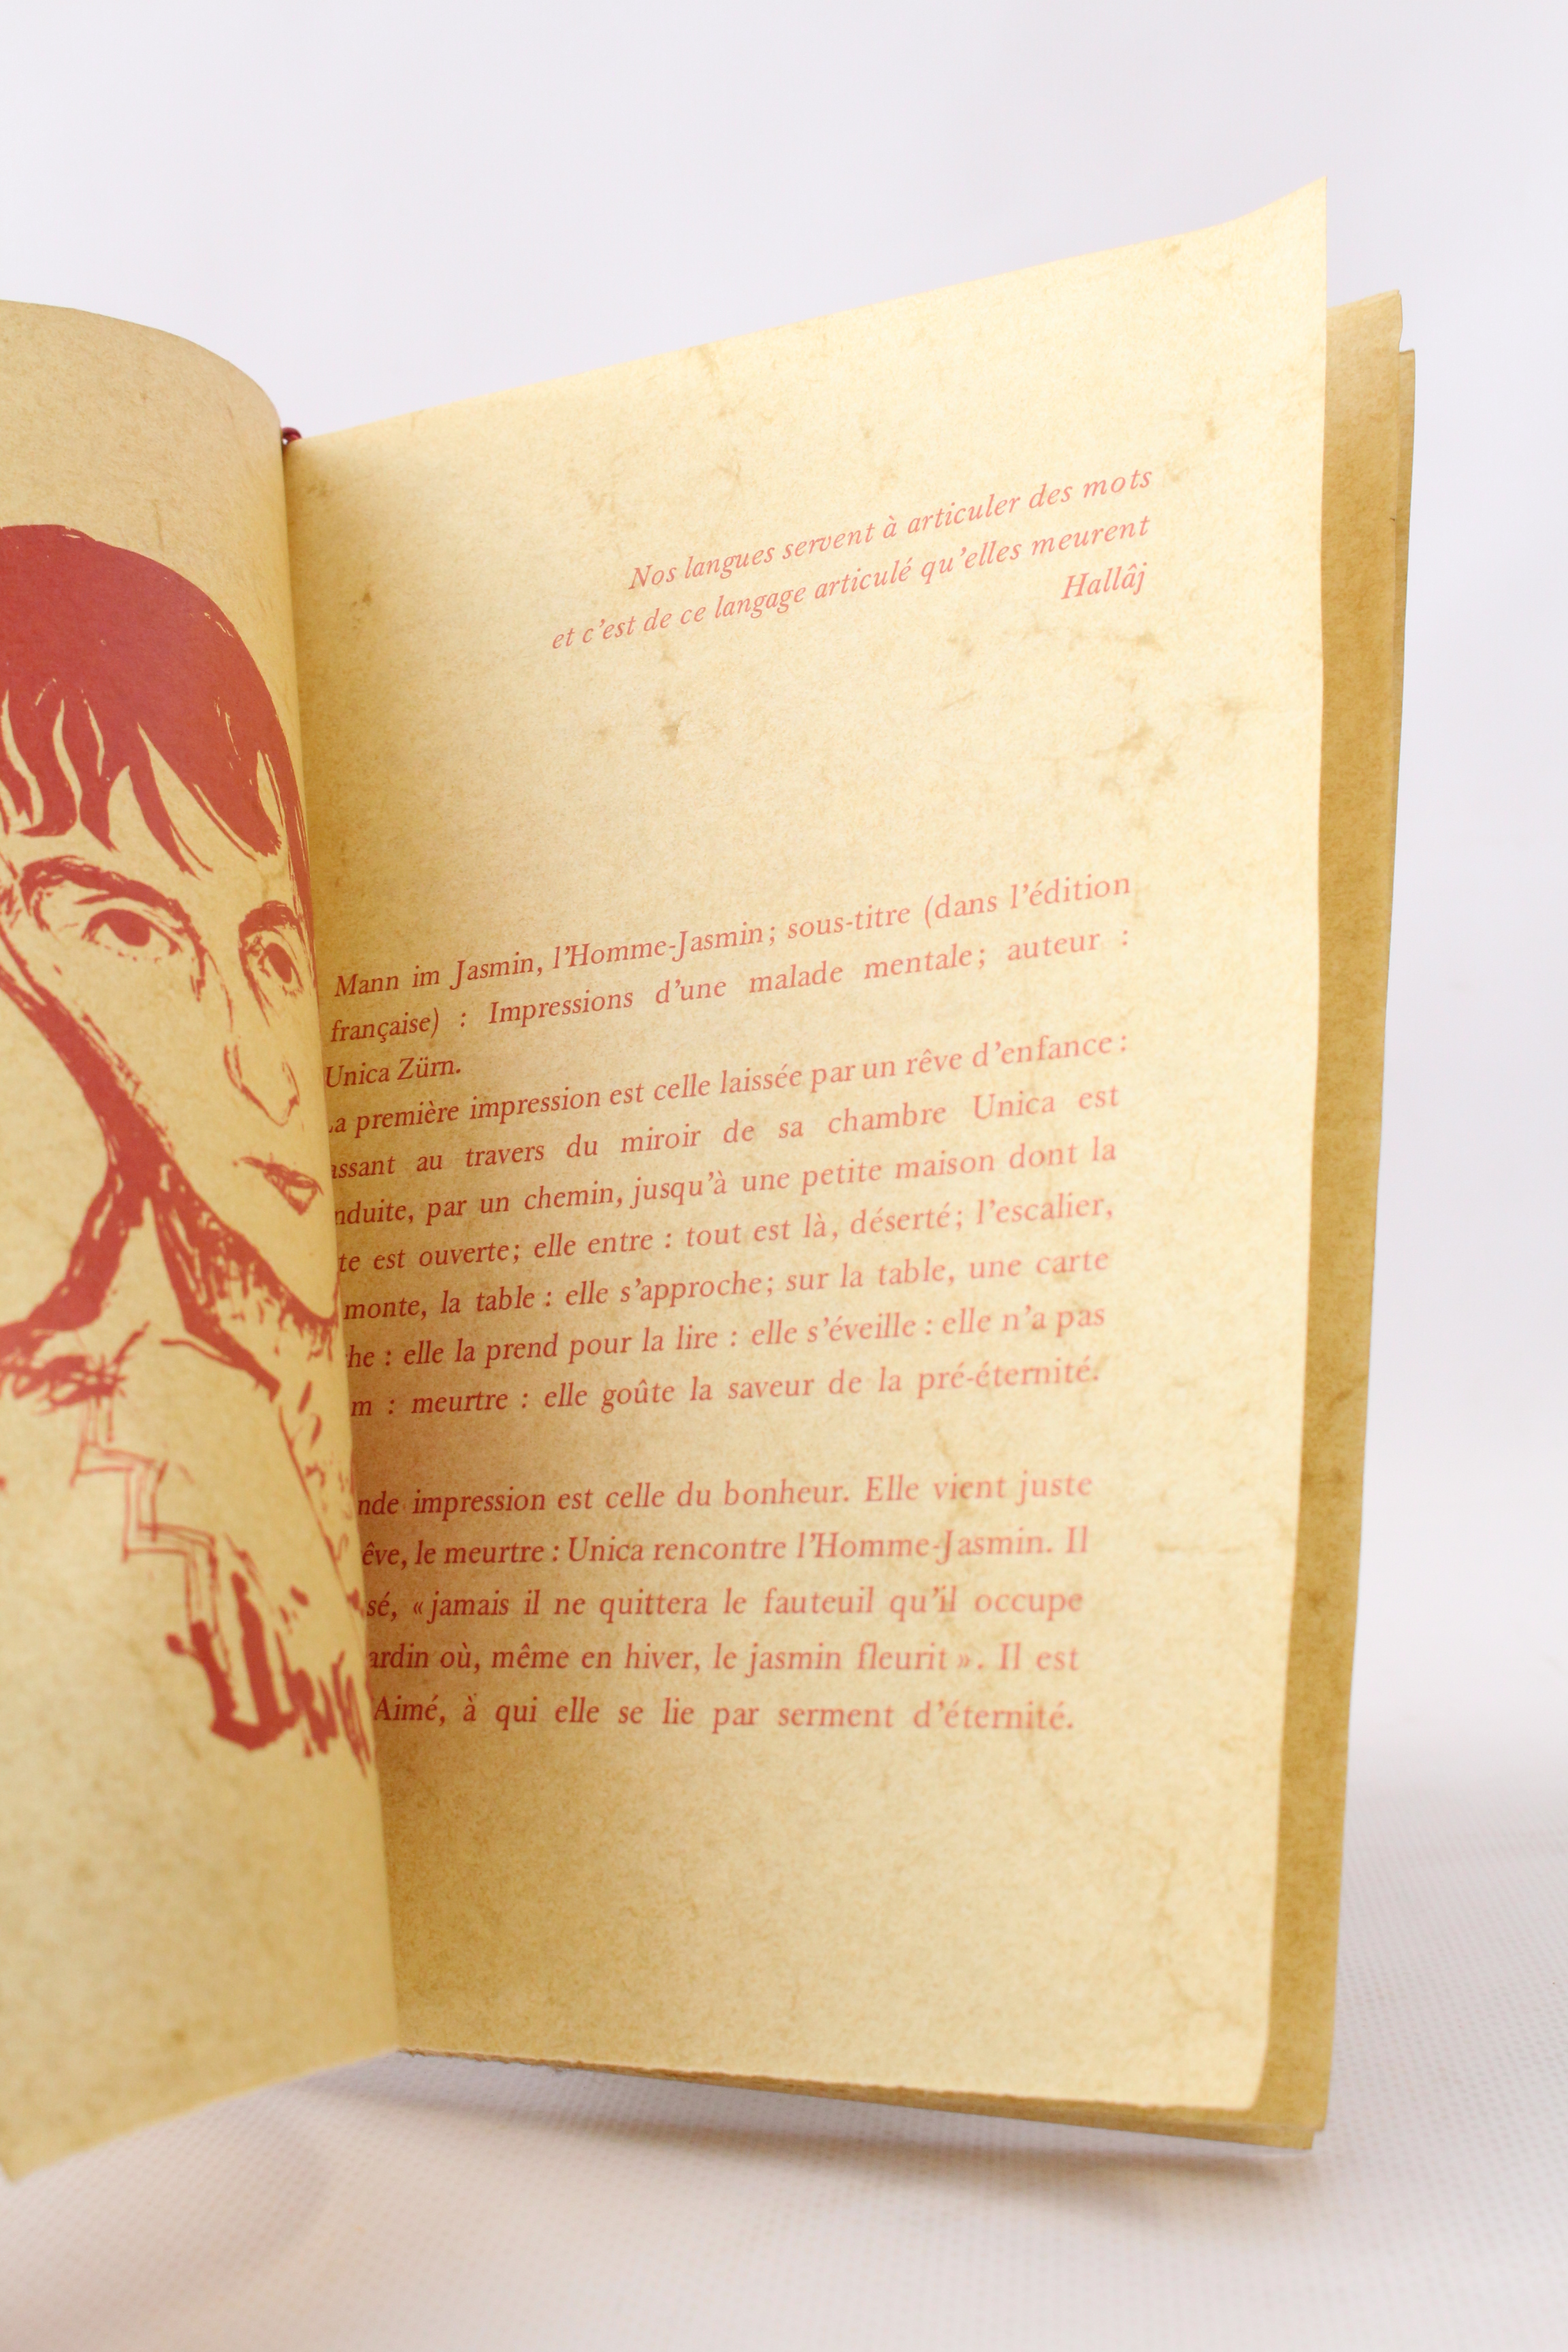 Nos langues servent à articuler des mots
et c'est de ce langage articulé qu'elles meurent
Hallâj
Mann im Jasmin, l'Homme-Jasmin ; sous-titre (dans l'édition
française) : Impressions d'une malade mentale ; auteur :
Unica Zürn.
La première impression est celle laissée par un rêve d'enfance :
au travers du miroir de sa chambre Unica est
par un chemin, jusqu'à une petite maison dont la
est ouverte ; elle entre : tout est là, déserté ; l'escalier,
monte, la table : elle s'approche ; sur la table, une carte
: elle la prend pour la lire : elle s'éveille : elle n'a pas
: meurtre : elle goûte la saveur de la pré-éternité.
impression est celle du bonheur. Elle vient juste
le meurtre : Unica rencontre l'Homme-Jasmin. Il
« jamais il ne quittera le fauteuil qu'il occupe
où, même en hiver, le jasmin fleurit ». Il est
Aimé, à qui elle se lie par serment d'éternité.